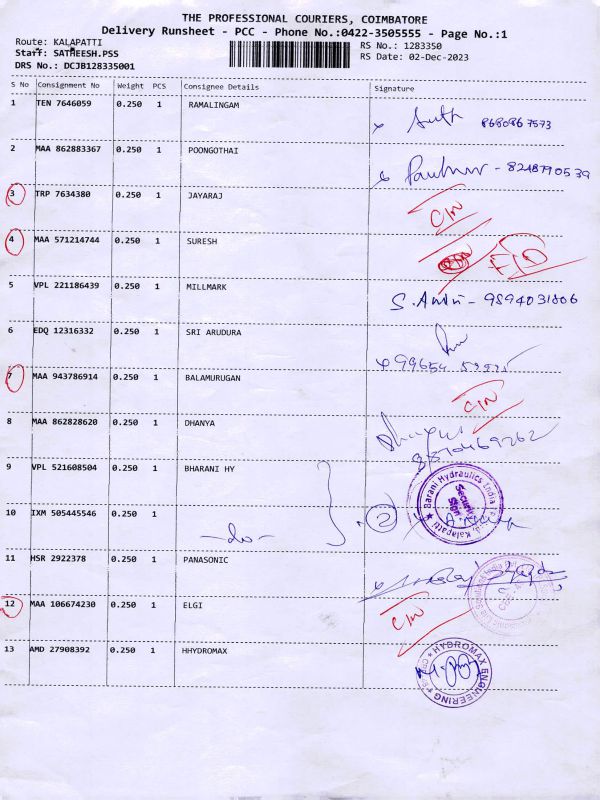 THE PROFESSIONAL COURIERS, COIMBATORE
Delivery Runsheet - PCC - Phone No.:0422-3505555 - Page No.:1
Route: KALAPATTI RS No.: 1283350
Staff: SATHEESH.PSS RS Date: 02-Dec-2023
DRS No.: DCJB128335001
S No Consignment No Weight PCS Consignee Details Signature
1 TEN 7646059 0.250 1 RAMALINGAM 8680867573
2 MAA 862883367 0.250 1 POONGOTHAI - 8248790539
3 TRP 7634380 0.250 1 JAYARAJ C/N
4 MAA 571214744 0.250 1 SURESH
5 VPL 221186439 0.250 1 MILLMARK - 9894031806
6 EDQ 12316332 0.250 1 SRI ARUDURA
7 MAA 943786914 0.250 1 BALAMURUGAN C/N
8 MAA 862828620 0.250 1 DHANYA 8870469262
9 VPL 521608504 0.250 1 BHARANI HY
10 IXM 505445546 0.250 1 -do- 2
Barani Hydraulics India Kalapatti
Security Sign
11 HSR 2922378 0.250 1 PANASONIC
12 MAA 106674230 0.250 1 ELGI C/N
13 AMD 27908392 0.250 1 HHYDROMAX
HYDROMAX ENGINEERING